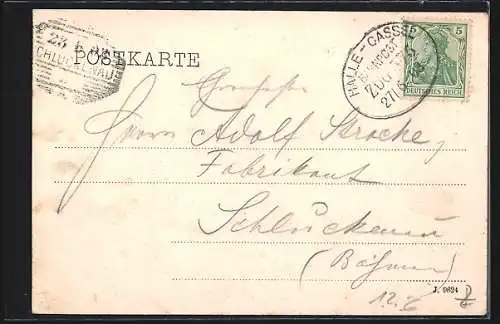 SCHLUCKENAU
POSTKARTE
HALLE - CASSEL
BAHNPOST
ZUG
5
DEUTSCHES REICH
Herrn Adolf Strache,
Fabrikant
Schluckenau
(Böhmen)
J. 9624